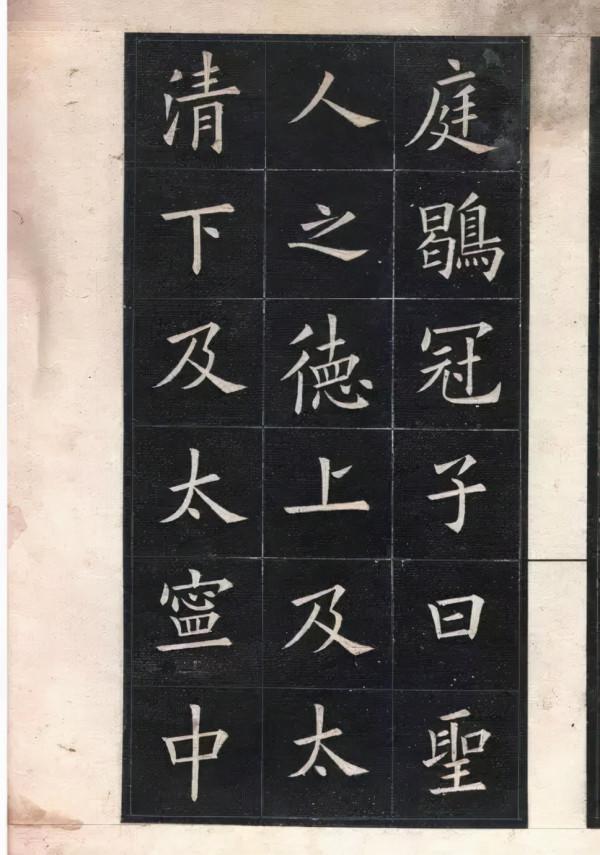 庭鶡冠子曰聖
人之德上及太
清下及太寧中